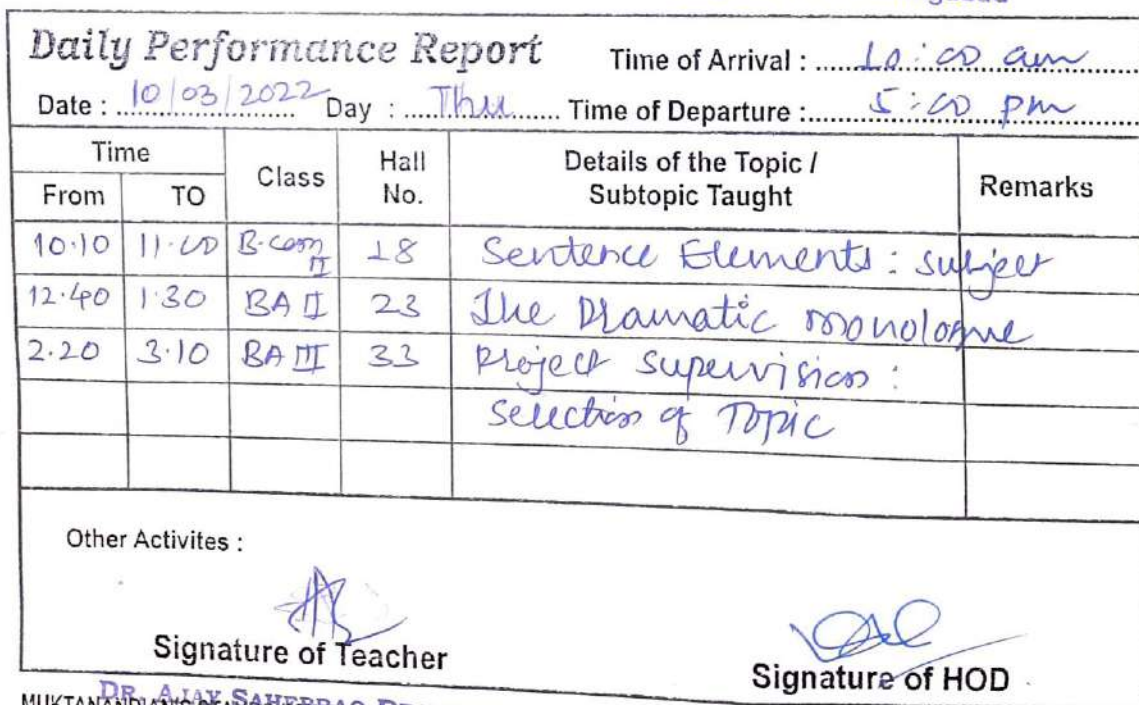 Daily Performance Report Time of Arrival : 10:00 am
Date : 10/03/2022 Day : Thu Time of Departure : 5:00 pm
Time Class Hall No. Details of the Topic / Subtopic Taught Remarks
From TO
10.10 11.00 B.com II 18 Sentence Elements: subject
12.40 1.30 BA II 23 The Dramatic monologue
2.20 3.10 BA III 33 Project supervision:
Selection of Topic
Other Activites :
Signature of Teacher Signature of HOD
DR. AJAY SAHEBRAO